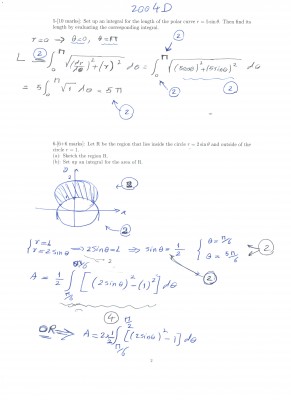 2004D
5.[10 marks] Set up an integral for the length of the polar curve r = 5 sin θ. Then find its
length by evaluating the corresponding integral.
r=0 → θ=0, θ=π
L = ∫₀^π √((dr/dθ)²+(r)²) dθ = ∫₀^π √((5cosθ)²+(5sinθ)²) dθ
= 5∫₀^π √1 dθ = 5π
6.[6+6 marks] Let R be the region that lies inside the circle r = 2 sin θ and outside of the
circle r = 1.
(a) Sketch the region R.
(b) Set up an integral for the area of R.
{ r=1 r=2sinθ → 2sinθ=1 → sinθ = 1/2 { θ=π/6 θ=5π/6
A = 1/2 ∫_{π/6}^{5π/6} [(2sinθ)² − (1)²] dθ
OR ⇒ A = 2·1/2 ∫_{π/6}^{π/2} [(2sinθ)² − 1] dθ